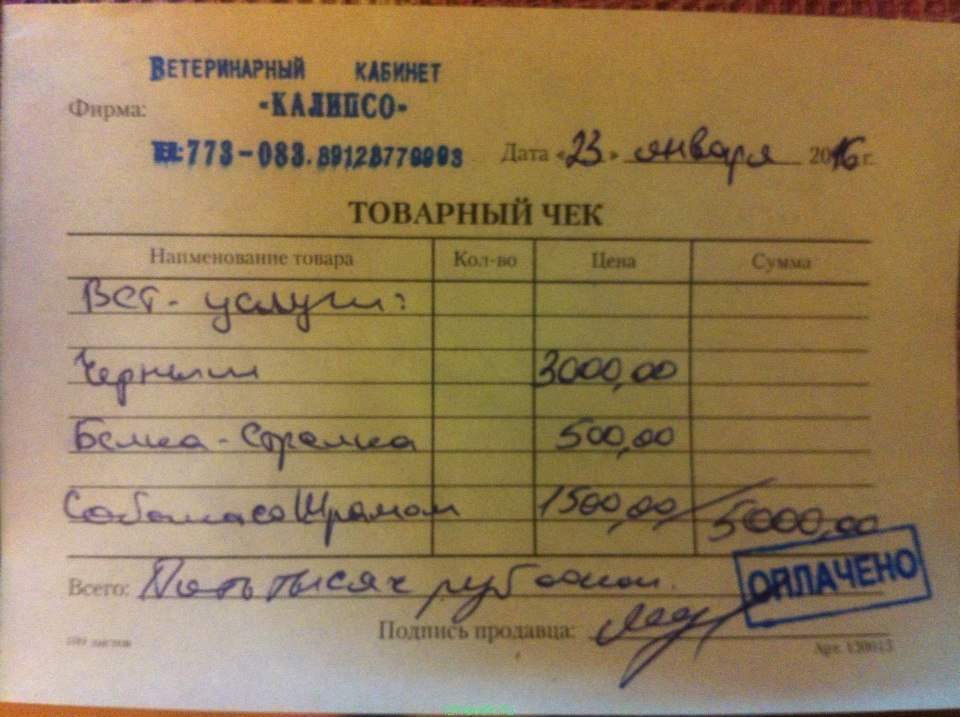 ВЕТЕРИНАРНЫЙ КАБИНЕТ
Фирма: «КАЛИПСО»
ТЕЛ: 773-083. 89128770993 Дата «23» января 2016 г.
ТОВАРНЫЙ ЧЕК
Наименование товара Кол-во Цена Сумма
Вет. услуги:
Черныш 3000,00
Белка - Стрелка 500,00
Собака со Шрамом 1500,00 5000,00
Всего: Пять тысяч руб оокоп.
ОПЛАЧЕНО
Подпись продавца:
100 листов Арт. 120013